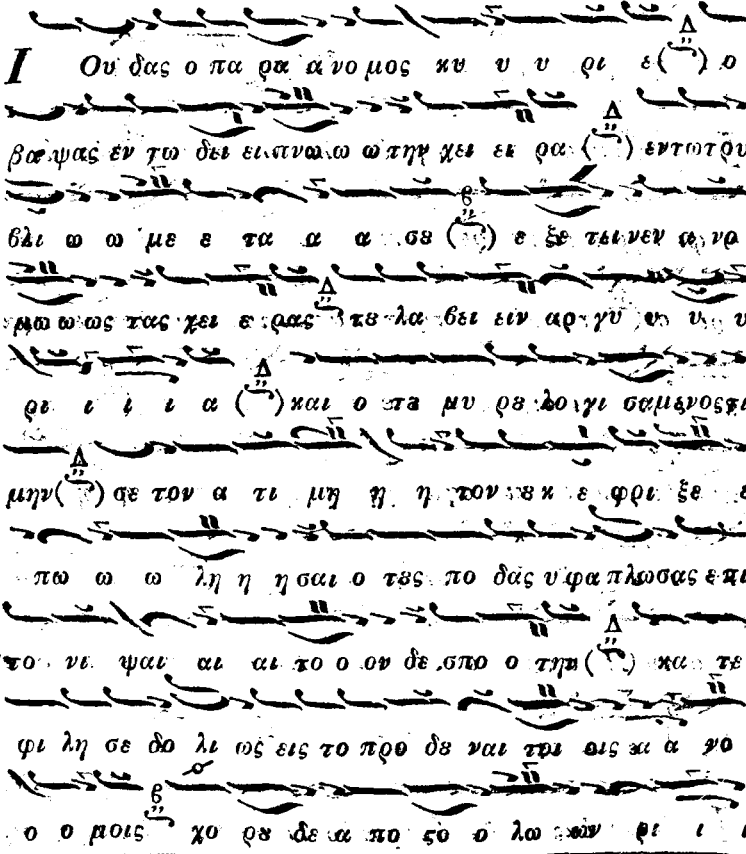 Ι Ου δας ο πα ρα α νο μος κυ υ υ ρι ε ( Δ ) ο
βα ψας εν τω δει ει πνω ω ω την χει ει ρα ( Δ ) εν τω τρυ
βλι ω ω με ε τα α α σȣ ( ϐ ) ε ξε τει νεν α νο
μω ω ως τας χει ε ρας Δ τȣ λα βει ειν αρ γυ υ υ υ
ρι ι ι ι α ( Δ ) και ο τȣ μυ ρȣ λο γι σαμενος τι
μην ( Δ ) σε τον α τι μη η η τον ȣκ ε φρι ξε ε
πω ω ω λη η η σαι ο τȣς πο δας υ φα πλωσας ε πι
το νι ψαι αι αι το ο ον δε σπο ο την ( Δ ) κα τε
φι λη σε δο λι ως εις το προ δȣ ναι τοι οις α α νο
ο ο μοις ϐ χο ρȣ δε α πο ϛο ο λω ων ρι ι ι